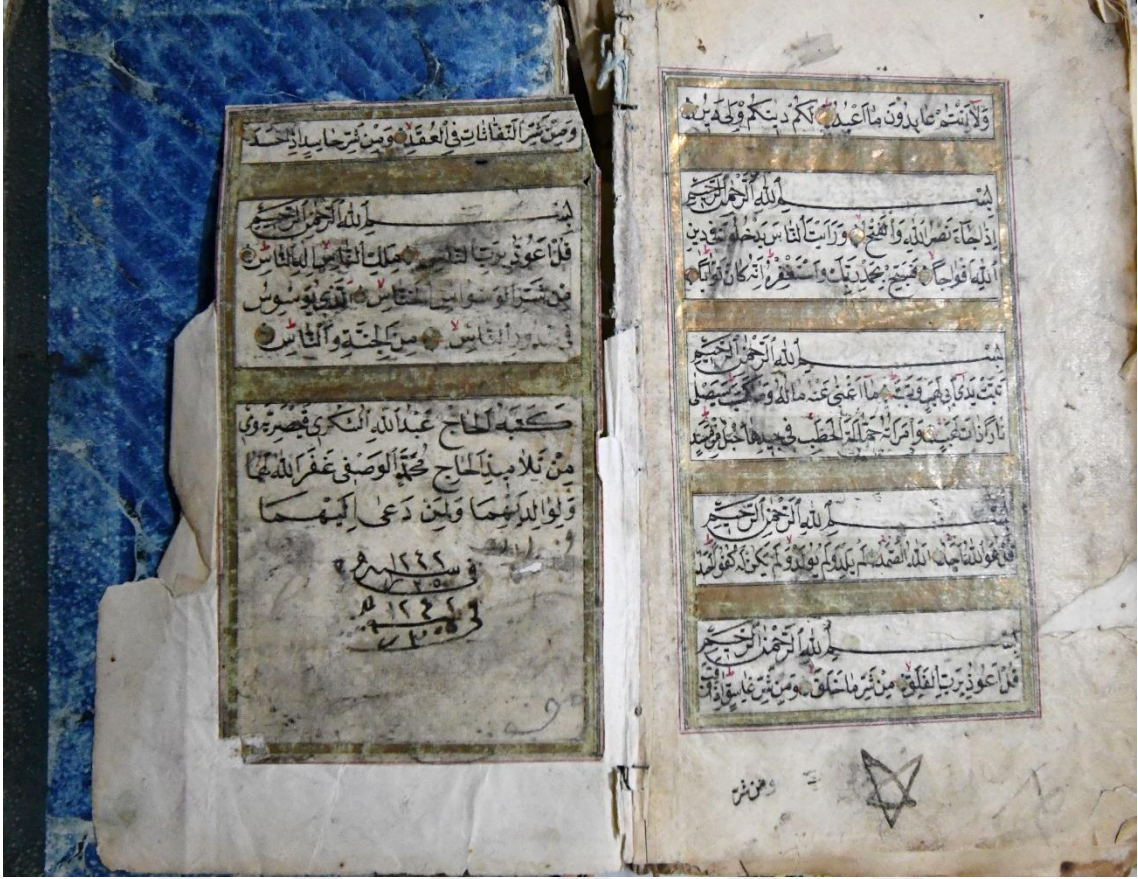 وَلَا أَنْتُمْ عَابِدُونَ مَا أَعْبُدُ لَكُمْ دِينُكُمْ وَلِيَ دِينِ
بِسْمِ اللهِ الرَّحْمٰنِ الرَّحِيمِ
إِذَا جَاءَ نَصْرُ اللهِ وَالْفَتْحُ وَرَأَيْتَ النَّاسَ يَدْخُلُونَ فِي دِينِ
اللهِ أَفْوَاجًا فَسَبِّحْ بِحَمْدِ رَبِّكَ وَاسْتَغْفِرْهُ إِنَّهُ كَانَ تَوَّابًا
بِسْمِ اللهِ الرَّحْمٰنِ الرَّحِيمِ
تَبَّتْ يَدَا أَبِي لَهَبٍ وَتَبَّ مَا أَغْنَى عَنْهُ مَالُهُ وَمَا كَسَبَ سَيَصْلَى
نَارًا ذَاتَ لَهَبٍ وَامْرَأَتُهُ حَمَّالَةَ الْحَطَبِ فِي جِيدِهَا حَبْلٌ مِنْ مَسَدٍ
بِسْمِ اللهِ الرَّحْمٰنِ الرَّحِيمِ
قُلْ هُوَ اللهُ أَحَدٌ اللهُ الصَّمَدُ لَمْ يَلِدْ وَلَمْ يُولَدْ وَلَمْ يَكُنْ لَهُ كُفُوًا أَحَدٌ
بِسْمِ اللهِ الرَّحْمٰنِ الرَّحِيمِ
قُلْ أَعُوذُ بِرَبِّ الْفَلَقِ مِنْ شَرِّ مَا خَلَقَ وَمِنْ شَرِّ غَاسِقٍ إِذَا وَقَبَ
ومن شر
وَمِنْ شَرِّ النَّفَّاثَاتِ فِي الْعُقَدِ وَمِنْ شَرِّ حَاسِدٍ إِذَا حَسَدَ
بِسْمِ اللهِ الرَّحْمٰنِ الرَّحِيمِ
قُلْ أَعُوذُ بِرَبِّ النَّاسِ مَلِكِ النَّاسِ إِلٰهِ النَّاسِ
مِنْ شَرِّ الْوَسْوَاسِ الْخَنَّاسِ الَّذِي يُوَسْوِسُ
فِي صُدُورِ النَّاسِ مِنَ الْجِنَّةِ وَالنَّاسِ
كَتَبَهُ الْحَاجّ عَبْدُ اللهِ الشكرى قيصريه وى
مِنْ تَلَامِيذِ الْحَاجّ مُحَمَّد الْوَصْفِى غَفَرَ اللهُ لَهُمَا
وَلِوَالِدَيْهِمَا وَلِمَنْ دَعَى إِلَيْهِمَا
فى سنه ١٢٤٢
١٢٤٢